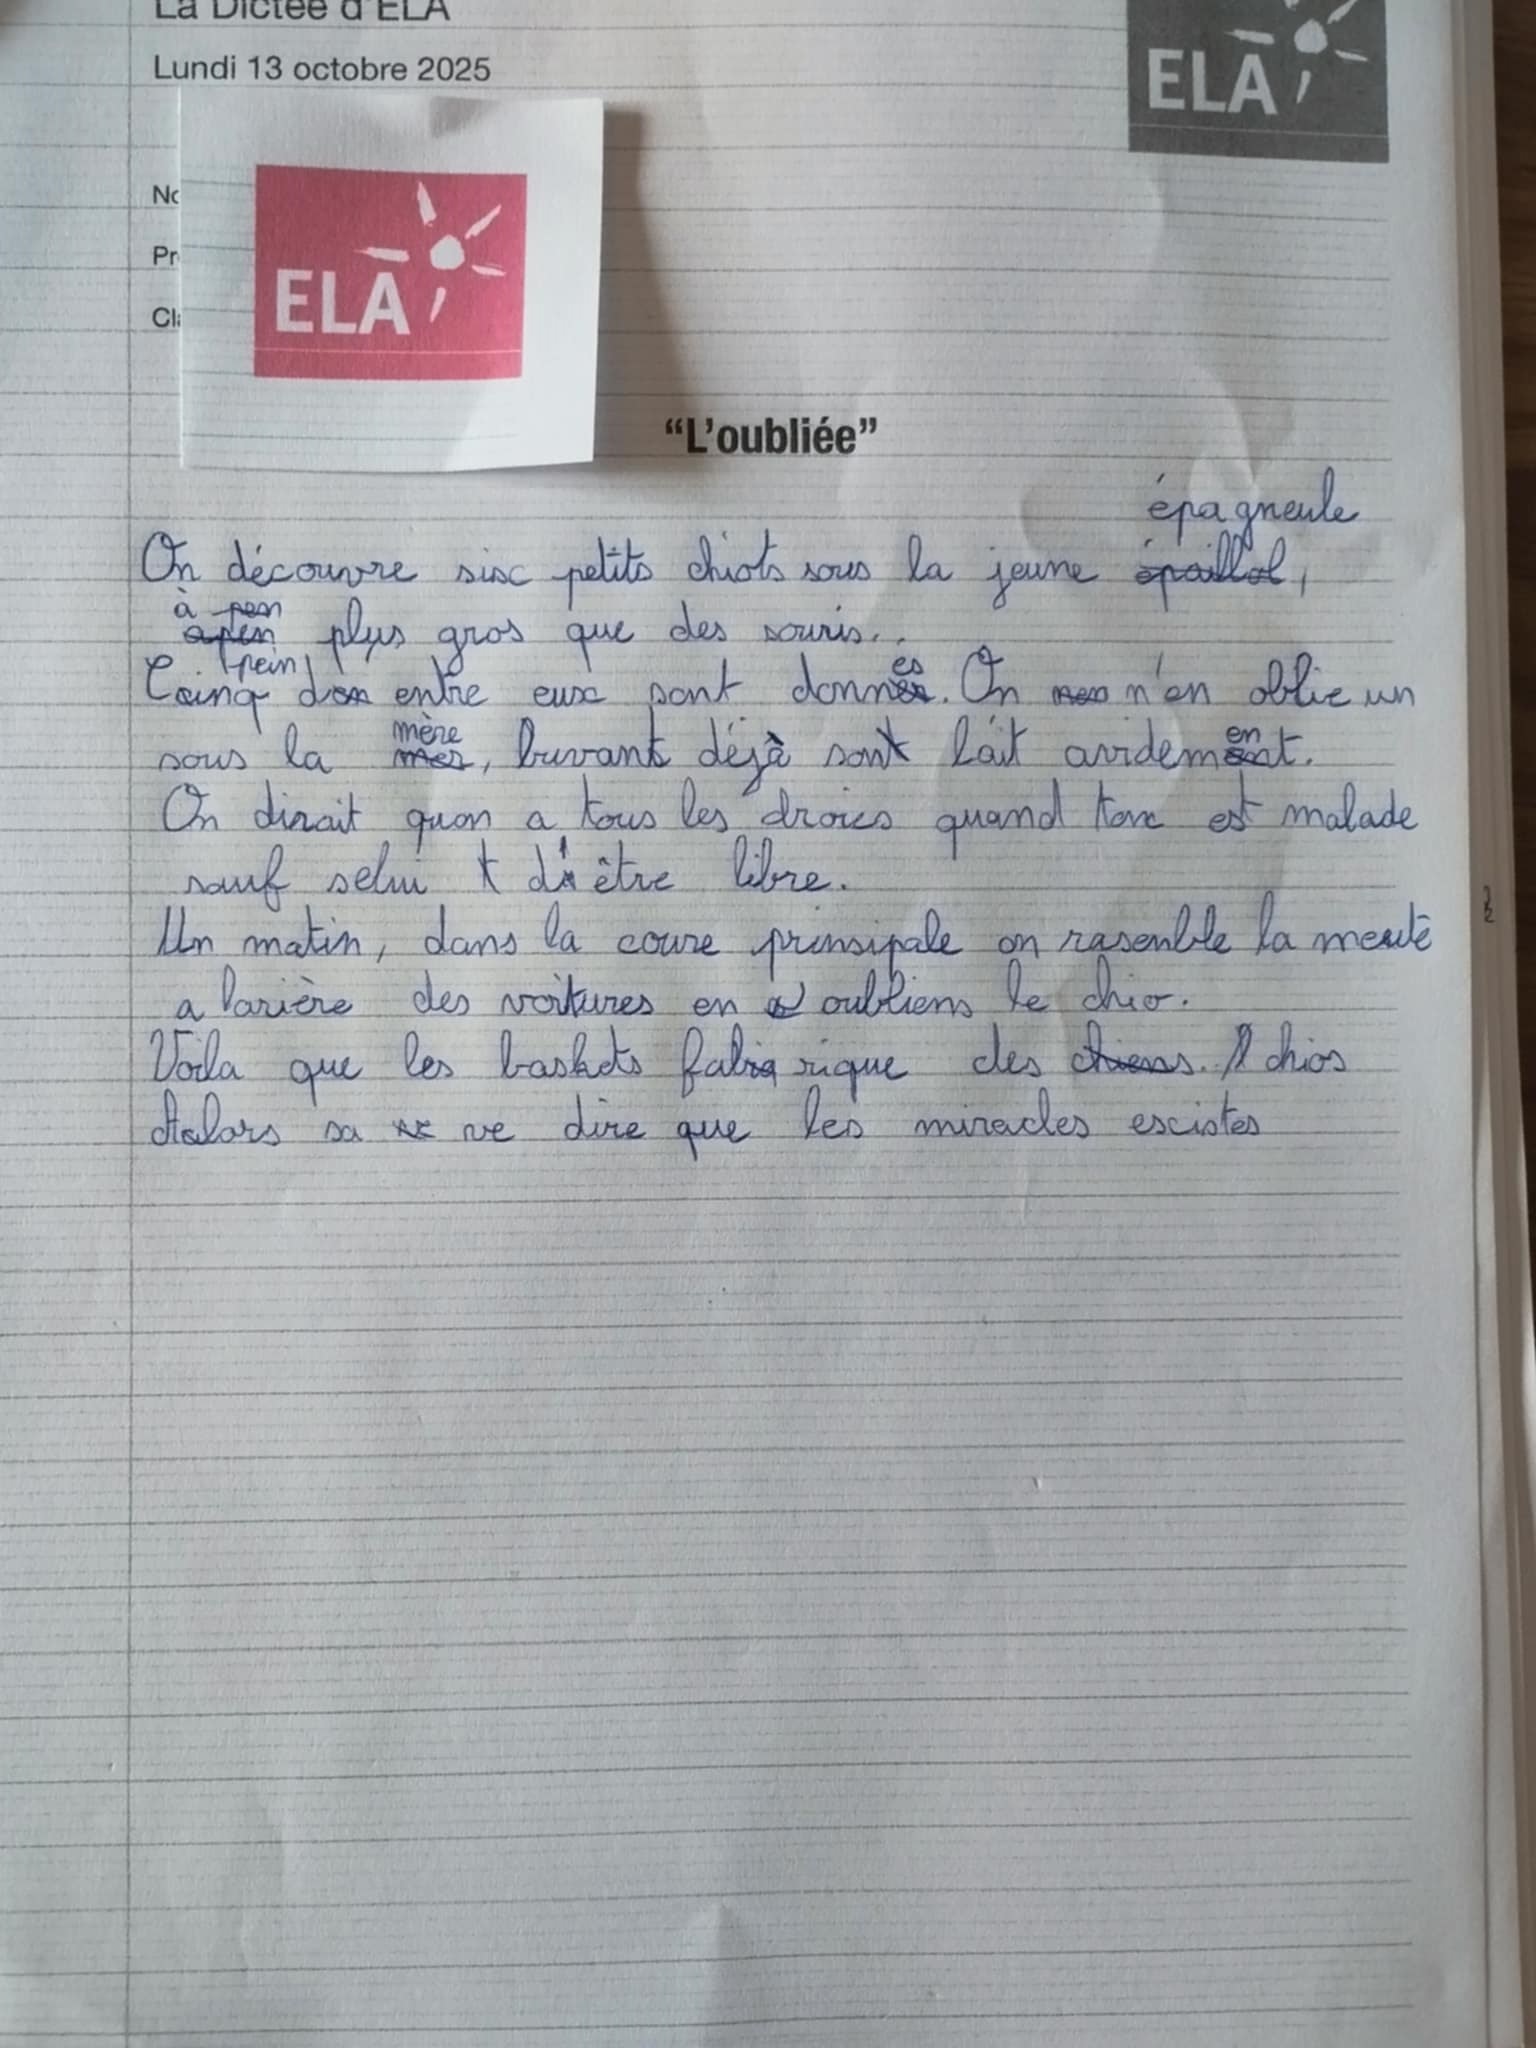 La Dictée d'ELA
Lundi 13 octobre 2025
ELA
No
Pr
Cla
ELA
"L'oubliée"
épagneule
On découvre sisc petits chiots sous la jeune épaillol,
à pen
apen plus gros que des souris..
pein
Cinq d' entre eux sont donnés. On n'en oblie un
mère
sous la mer, buvant déjà son lait avidement.
On dirait quon a tous les droics quand ton est malade
sauf selui d'être libre.
Un matin, dans la coure prinsipale on rasenble la meute
a larière des voitures en oubliens le chio.
Voila que les baskets fabrique des chiens. chios
Etalors sa ve dire que les miracles escistes